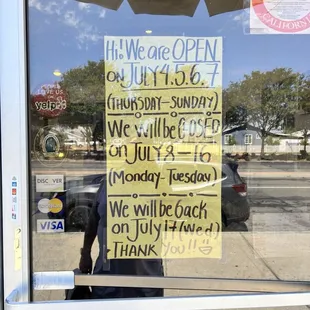 Hi! We are OPEN
on JULY 4.5.6.7
(THURSDAY-SUNDAY)
We will be CLOSED
on JULY 8-16
(Monday-Tuesday)
We will be back
on July 17 (Wed)
THANK you!!
yelp
DISCOVER
VISA
CALIFORNIA